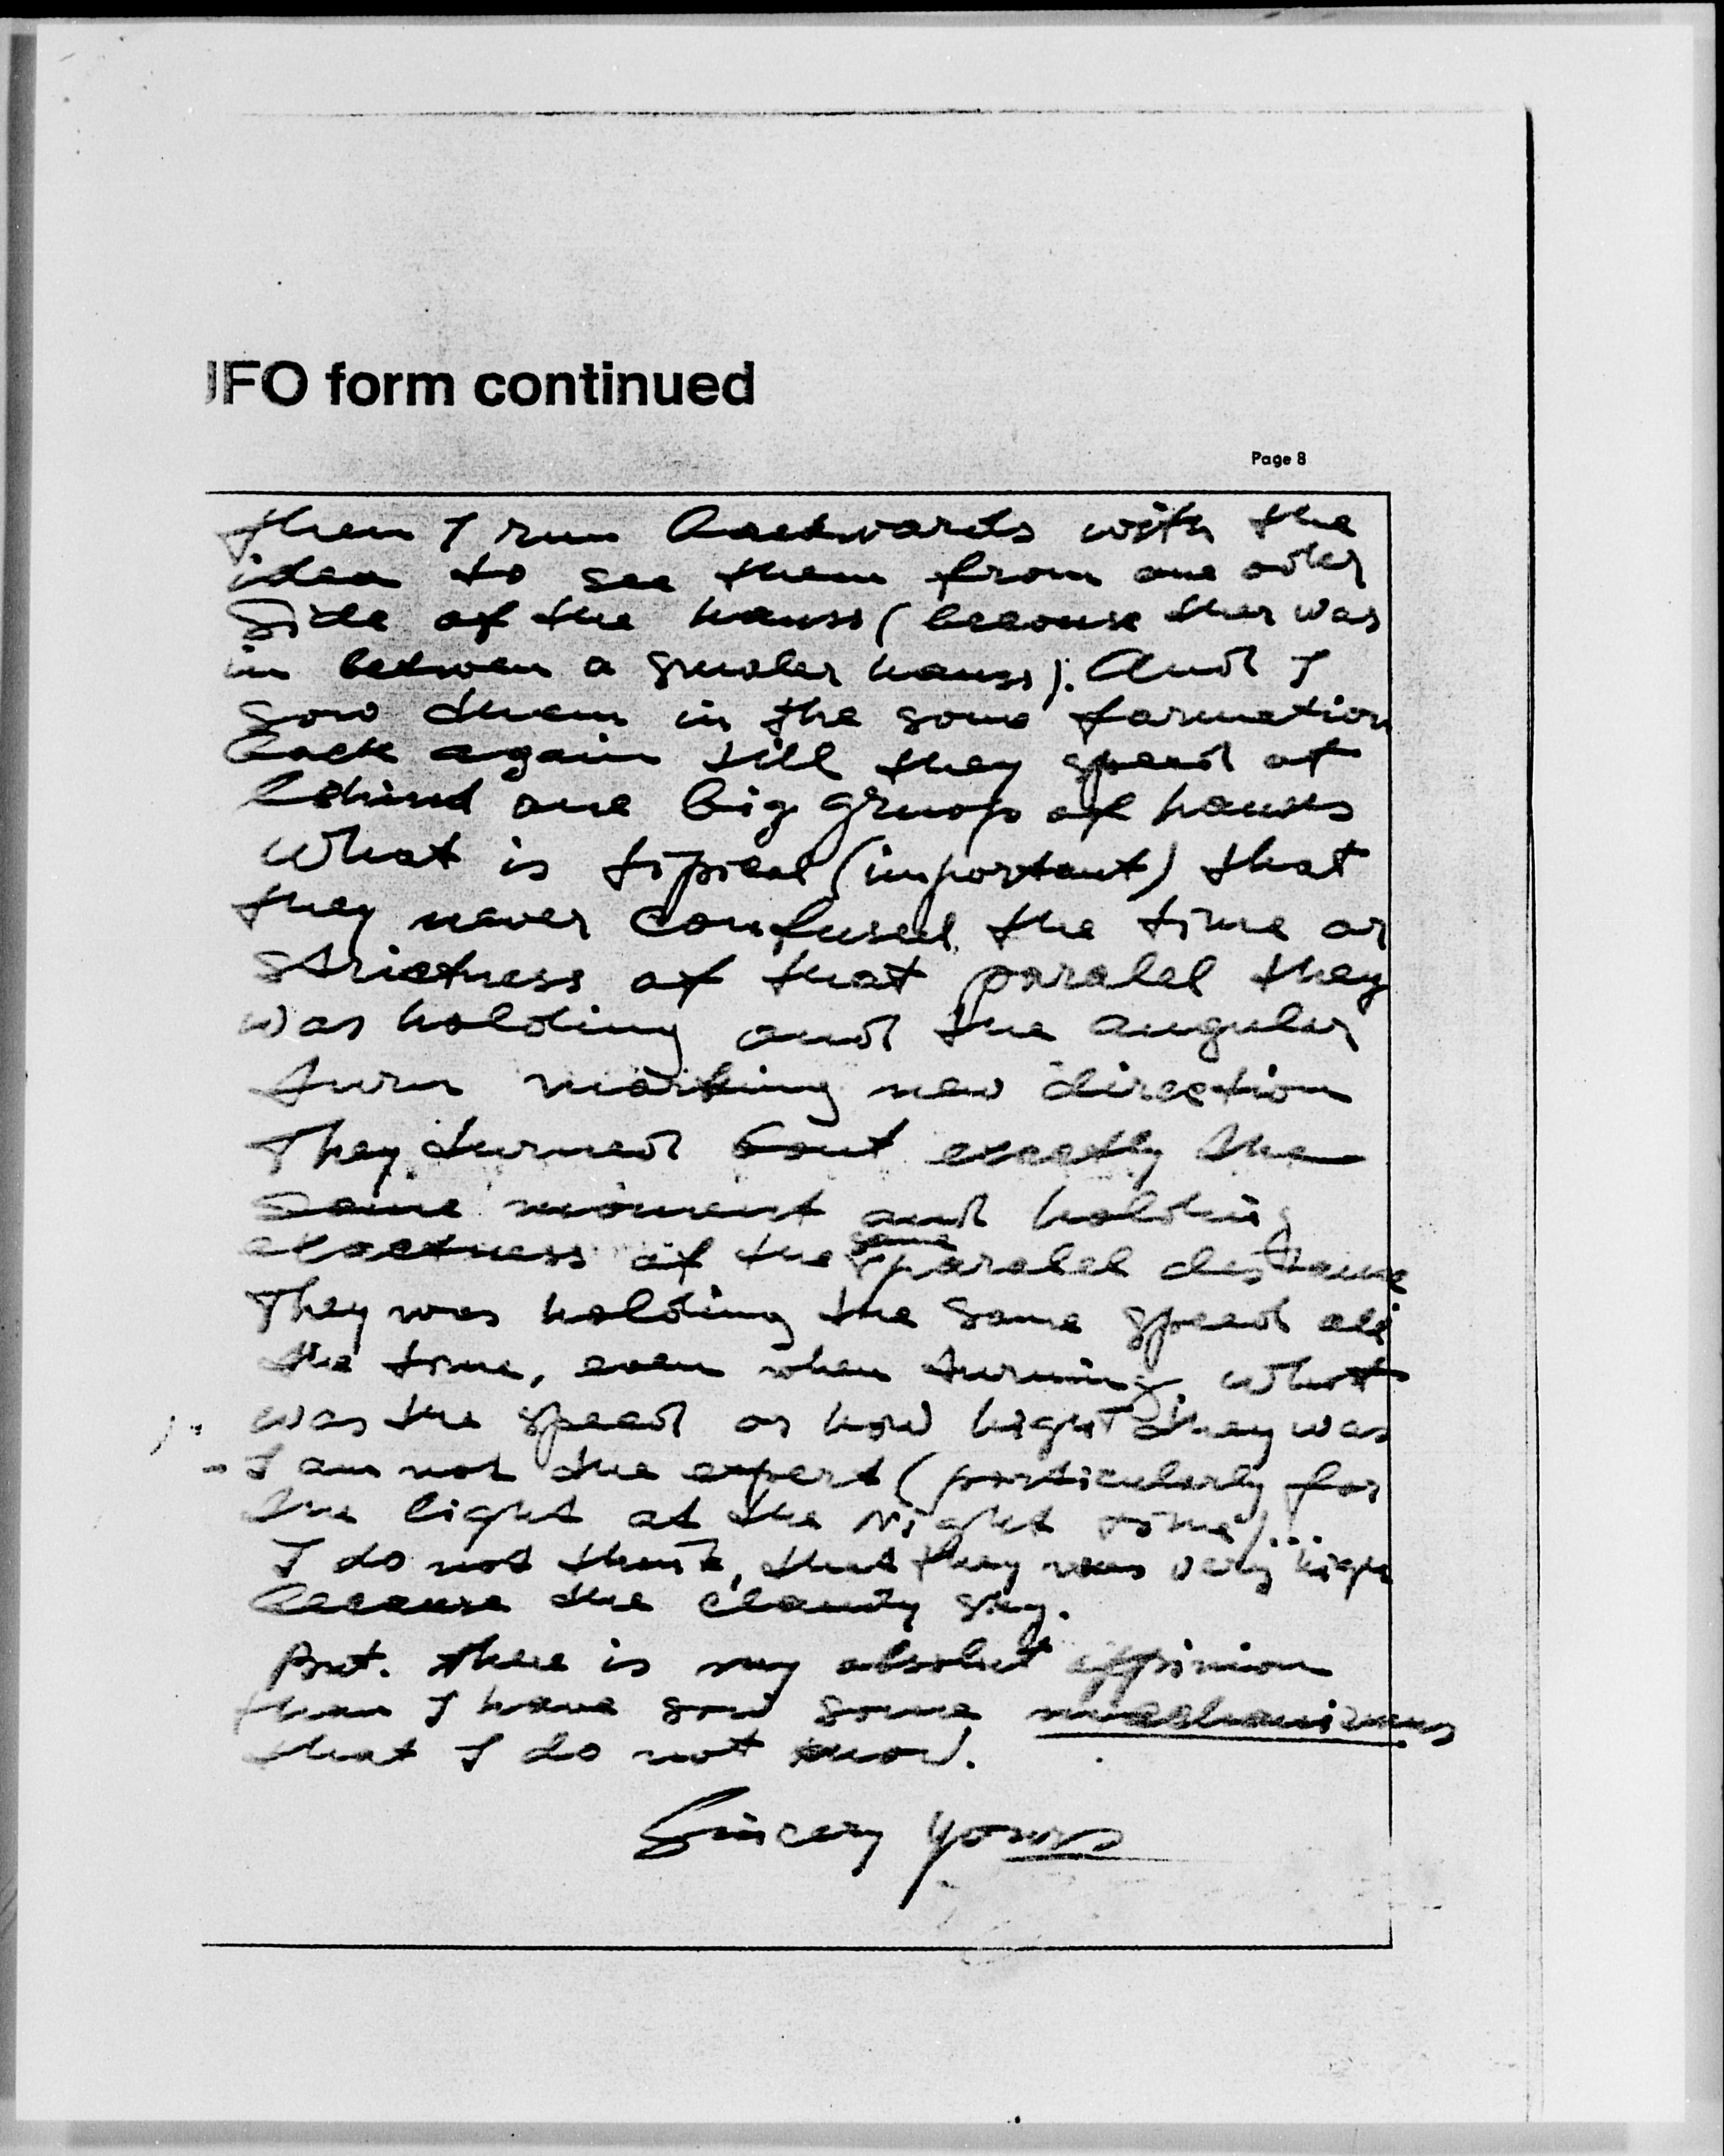 UFO form continued
Page 8
then I run backwards with the
idea to see them from one other
Side of the hauss (becouse ther was
in between a smoler hauss). And I
sow them in the some formation
back again till they speed of
behind one big gruop of houses
What is tipical (important) that
they never confused the time or
strictness of that paralel they
was holding and the anguler
turn marking new direction
They turned bout exectly the
same moment and holding
exactness of the same paralel distance
They was holding the same speed all
the time, even when turning. What
was the speed or how hight they was
I am not the expert (particularly for
the light at the Night time)...
I do not think, that they was very high
because the claudy sky.
But. there is my absolut oppinion
than I have sow some mechanizmus
that I do not know.
Sincery yours